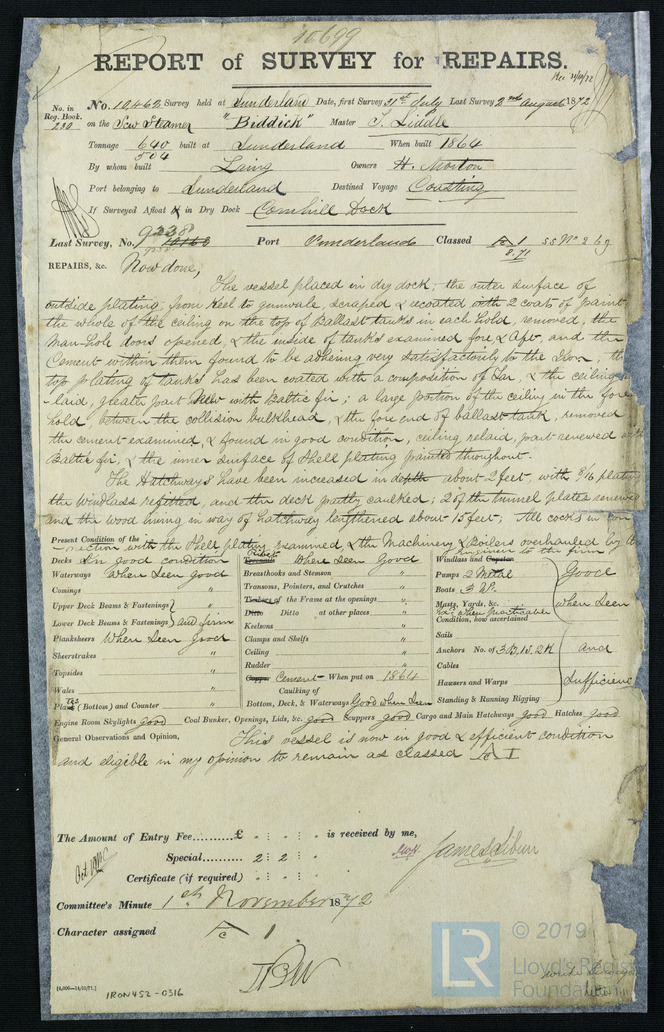 10699
REPORT of SURVEY for REPAIRS.
Rec 31/10/72
No. in Reg. Book. 230
No. 10462 Survey held at Sunderland Date, first Survey 31st July Last Survey 2nd August 1872
on the Scw Steamer "Biddick" Master T. Liddle
Tonnage 640 504 built at Sunderland When built 1864
By whom built Laing Owners H. Morton
Port belonging to Sunderland Destined Voyage Coasting
If Surveyed Afloat or in Dry Dock Cornhill Dock
Last Survey, No. 9238 Port Sunderland Classed A 1 8.71 SS No 2 69
REPAIRS, &c. Now done,
The vessel placed in dry dock; the outer surface of
outside plating, from keel to gunwale, scraped & recoated with 2 coats of paint
the whole of the ceiling on the top of Ballast tanks in each hold, removed, the
Man-hole doors opened, & the inside of tanks examined fore & aft, and the
Cement within them found to be adhering very satisfactorily to the Iron, the
top plating of tanks has been coated with a composition of Tar, & the ceiling
-laid, greater part New with Baltic fir; a large portion of the ceiling in the fore
hold, between the collision bulkhead, & the fore end of ballast tank, removed
the cement examined, & found in good condition, ceiling relaid, part renewed
Baltic fir, & the inner surface of Shell plating painted throughout.
The Hatchways have been increased in depth about 2 feet, with 8/16 plating
the windlass refitted, and the deck partly caulked; 2 of the tunnel plates renewed
and the wood lining in way of hatchway lengthened about 15 feet; All cocks in con
-nection with the Shell plating examined, & the Machinery & Boilers overhauled by the
Engineer to the firm
Present Condition of the
Decks In good condition
Waterways When seen good
Comings "
Upper Deck Beams & Fastenings
Lower Deck Beams & Fastenings and firm
Planksheers When seen good
Sheerstrakes "
Topsides "
Wales "
Plates (Bottom) and Counter "
Rivets When seen Good
Breasthooks and Stemson "
Transons, Pointers, and Crutches "
Timbers of the Frame at the openings "
Ditto Ditto at other places "
Keelsons "
Clamps and Shelfs "
Ceiling "
Rudder "
Copper Cement - When put on 1864
Caulking of
Bottom, Deck, & Waterways Good when seen
Windlass and Capstan
Pumps 2 Metal Good
Boats 3 W.
Masts, Yards, &c. when seen
Condition, how ascertained
Sails
Anchors No. of 3 B, 1 S, 2 K and
Cables
Hausers and Warps Sufficient
Standing & Running Rigging
Engine Room Skylights good Coal Bunker, Openings, Lids, &c. good Scuppers good Cargo and Main Hatchways good Hatches good
General Observations and Opinion, This vessel is now in good & efficient condition
and eligible in my opinion to remain as classed A 1
The Amount of Entry Fee.........£ is received by me,
Special......... 2 : 2 :
Certificate (if required)
Committee's Minute 1st November 1872
Character assigned A 1
[6,000—14/10/71.]
IRON452-0316
LR
© 2019
Lloyd's Register
Foundation